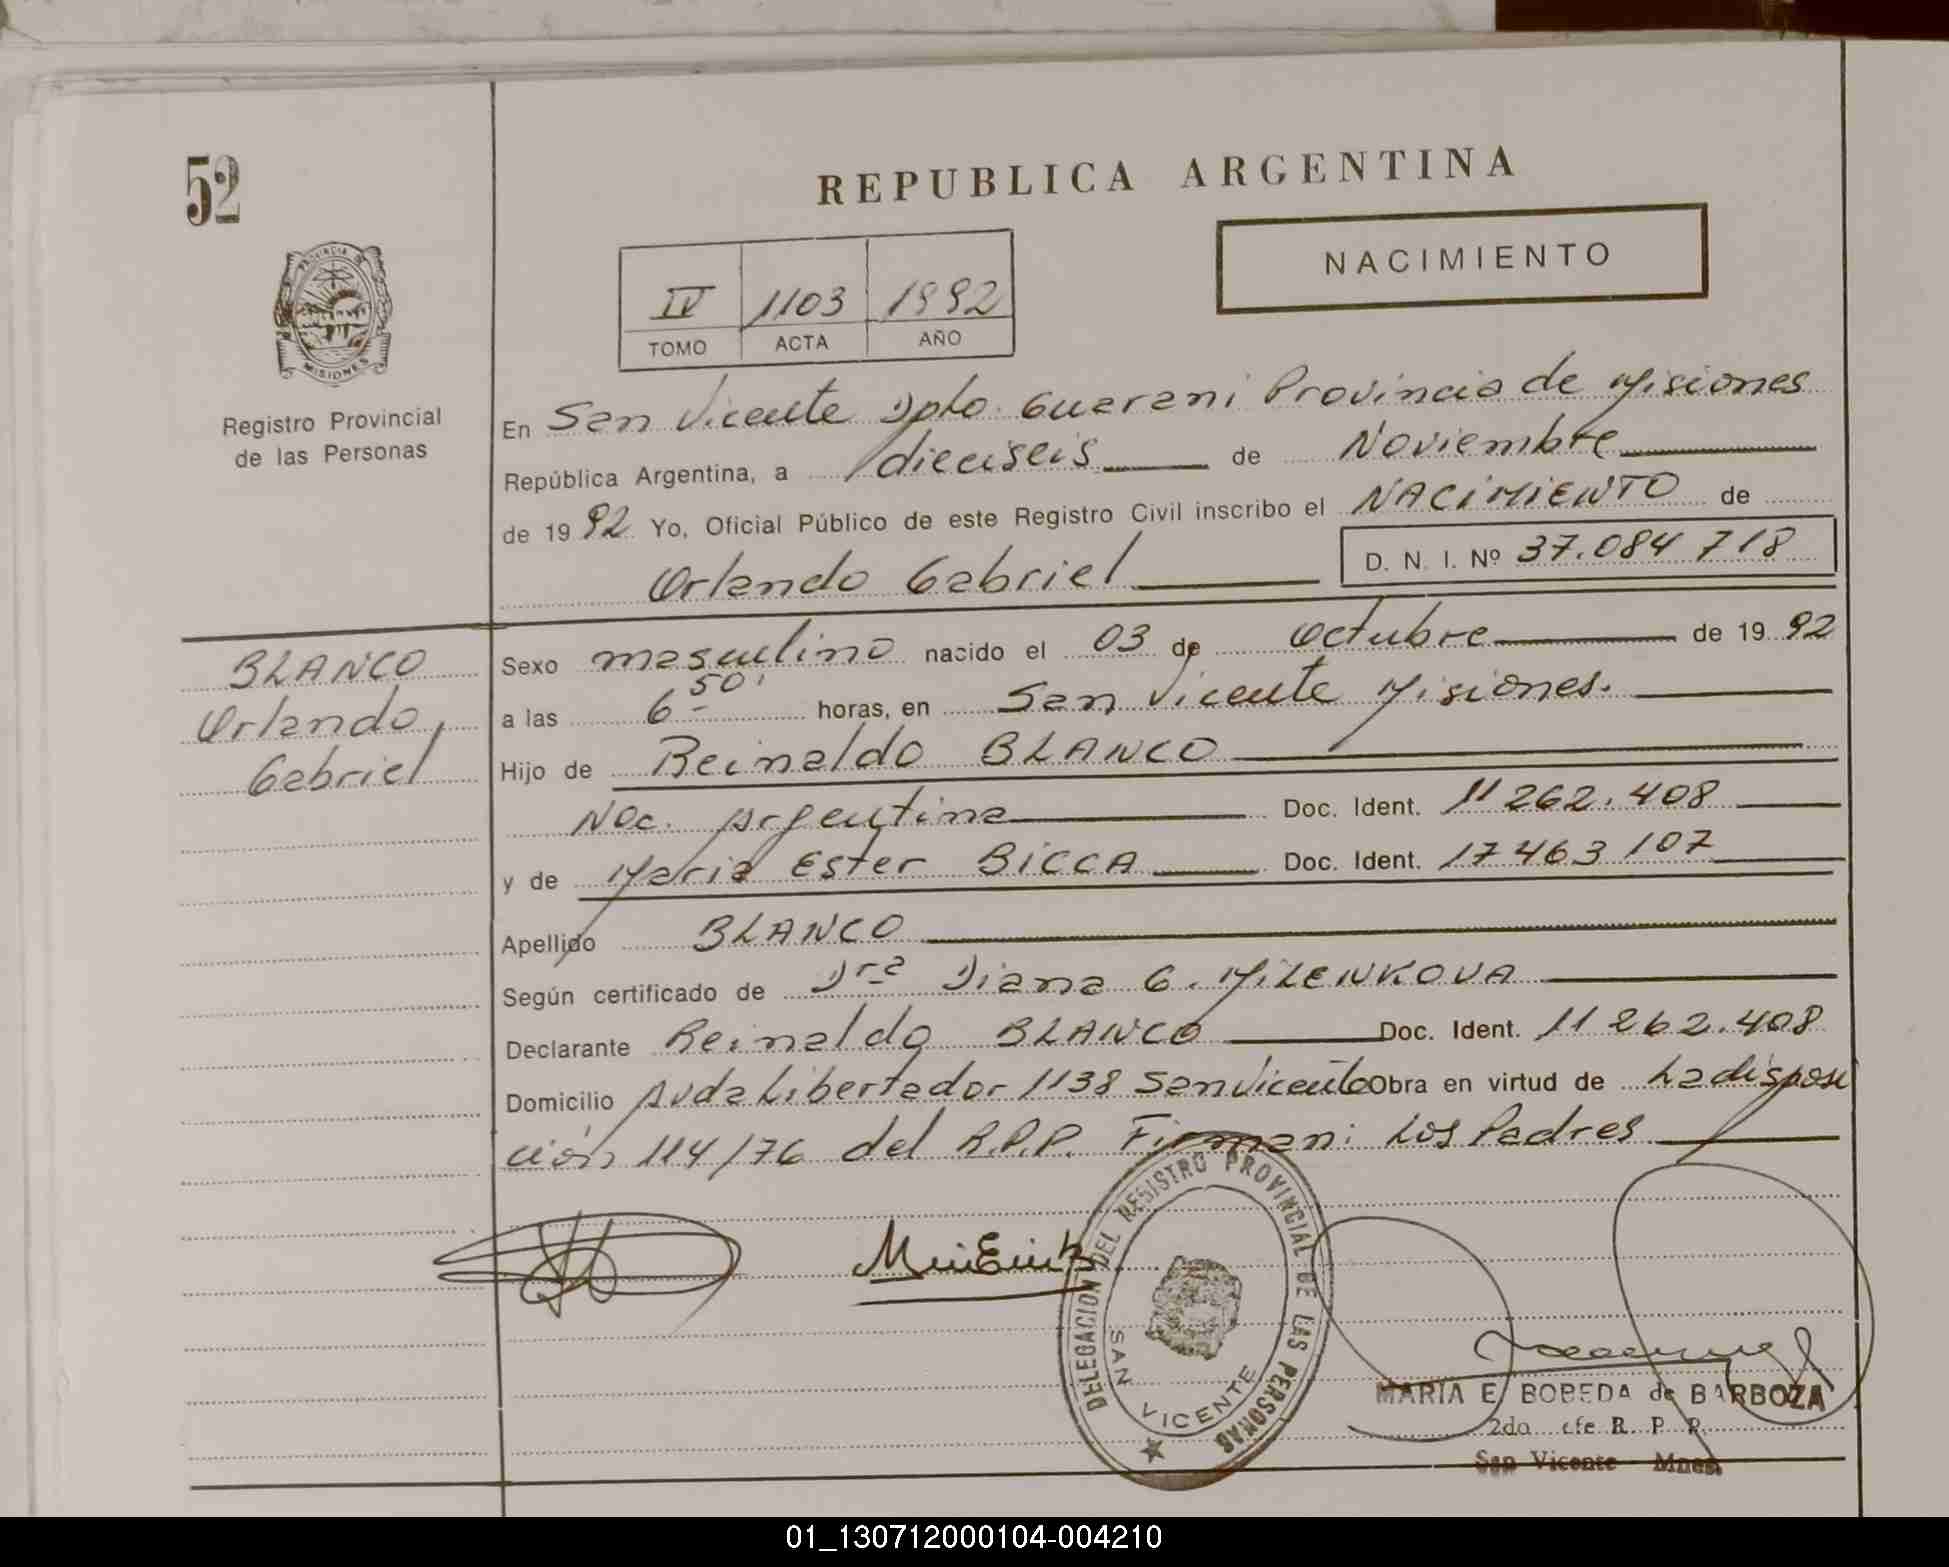 52
REPUBLICA ARGENTINA
NACIMIENTO
IV 1103 1992
TOMO ACTA AÑO
PROVINCIA DE MISIONES
Registro Provincial
de las Personas
En San Vicente Dpto. Guarani Provincia de Misiones
República Argentina, a dieciseis de Noviembre
de 1992 Yo, Oficial Público de este Registro Civil inscribo el NACIMIENTO de
Orlando Gabriel D. N. I. Nº 37.084 718
BLANCO
Orlando
Gabriel
Sexo masculino nacido el 03 de Octubre de 1992
a las 6 50' horas, en San Vicente Misiones.
Hijo de Reinaldo BLANCO
Nac. Argentina Doc. Ident. 11 262.408
y de Maria Ester BICCA Doc. Ident. 17 463 107
Apellido BLANCO
Según certificado de Dra Diana G. MILENKOVA
Declarante Reinaldo BLANCO Doc. Ident. 11 262.408
Domicilio Avda Libertador 1138 San Vicente Obra en virtud de La disposi
ción 114/76 del R.P.P. Firman: Los Padres
DELEGACION DEL REGISTRO PROVINCIAL DE LAS PERSONAS
SAN VICENTE
MARIA E. BOBEDA de BARBOZA
2do. efe R. P. P.
San Vicente Mnes.
01_130712000104-004210